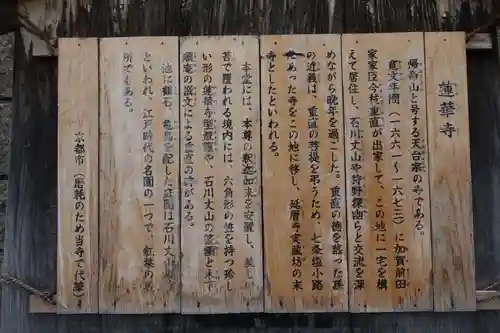 蓮華寺
帰命山と号する天台宗の寺である。
寛文年間(一六六一〜一六七三)に加賀前田
家家臣今枝重直が出家して、この地に一宅を構
えて居住し、石川丈山や狩野探幽らと交流を深
めながら晩年を過ごした。重直の徳を慕った孫
の近義は、重直の菩提を弔うため、七条塩小路
あった寺をこの地に移し、延暦寺実蔵坊の末
寺としたといわれる。
本堂には、本尊の釈迦如来を安置し、美しい
苔で覆われる境内には、六角形の笠を持つ珍し
い形の蓮華寺型燈籠や、石川丈山の篆額と木下
順庵の撰文による重直の碑がある。
池に鶴石、亀島を配した庭園は石川丈山
といわれ、江戸時代の名園の一つで、紅葉の名
所でもある。
京都市(磨耗のため当寺で代筆)